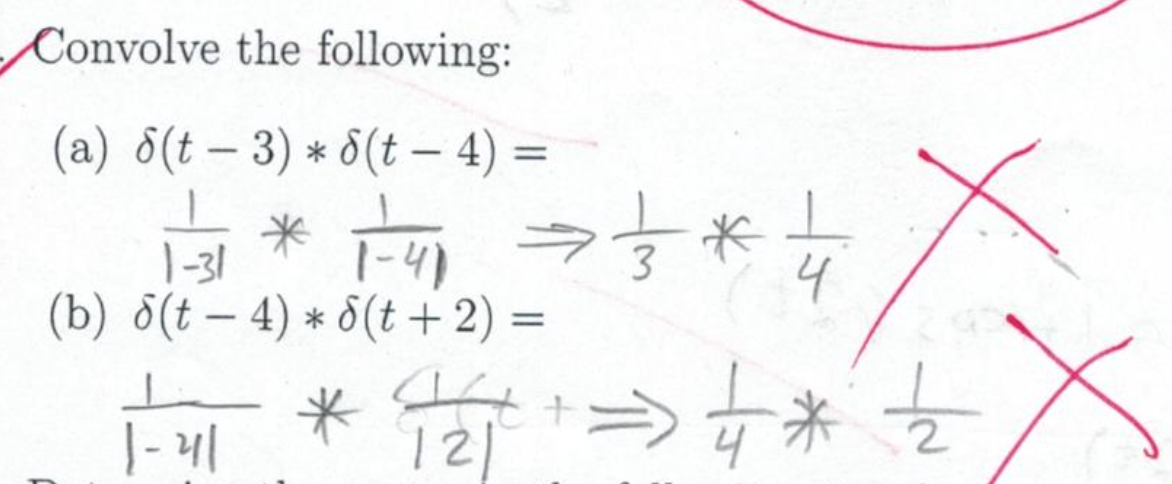 Convolve the following:
(a) δ(t − 3) ∗ δ(t − 4) =
1/|-3| * 1/|-4| ⇒ 1/3 * 1/4
(b) δ(t − 4) ∗ δ(t + 2) =
1/|-4| * 1/|2| ⇒ 1/4 * 1/2